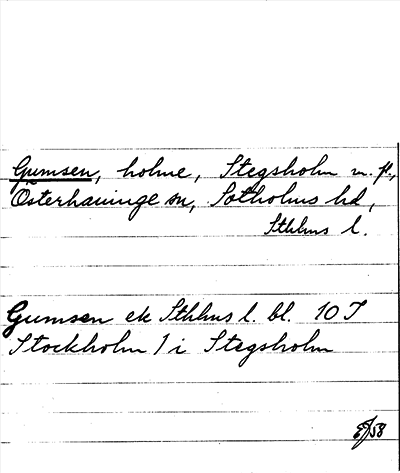 Gumsen, holme, Stegsholm m. fl.,
Österhaninge sn, Sotholms hd,
Sthlms l.
Gumsen ek Sthlms l. bl. 10 J
Stockholm 1 i Stegsholm
58